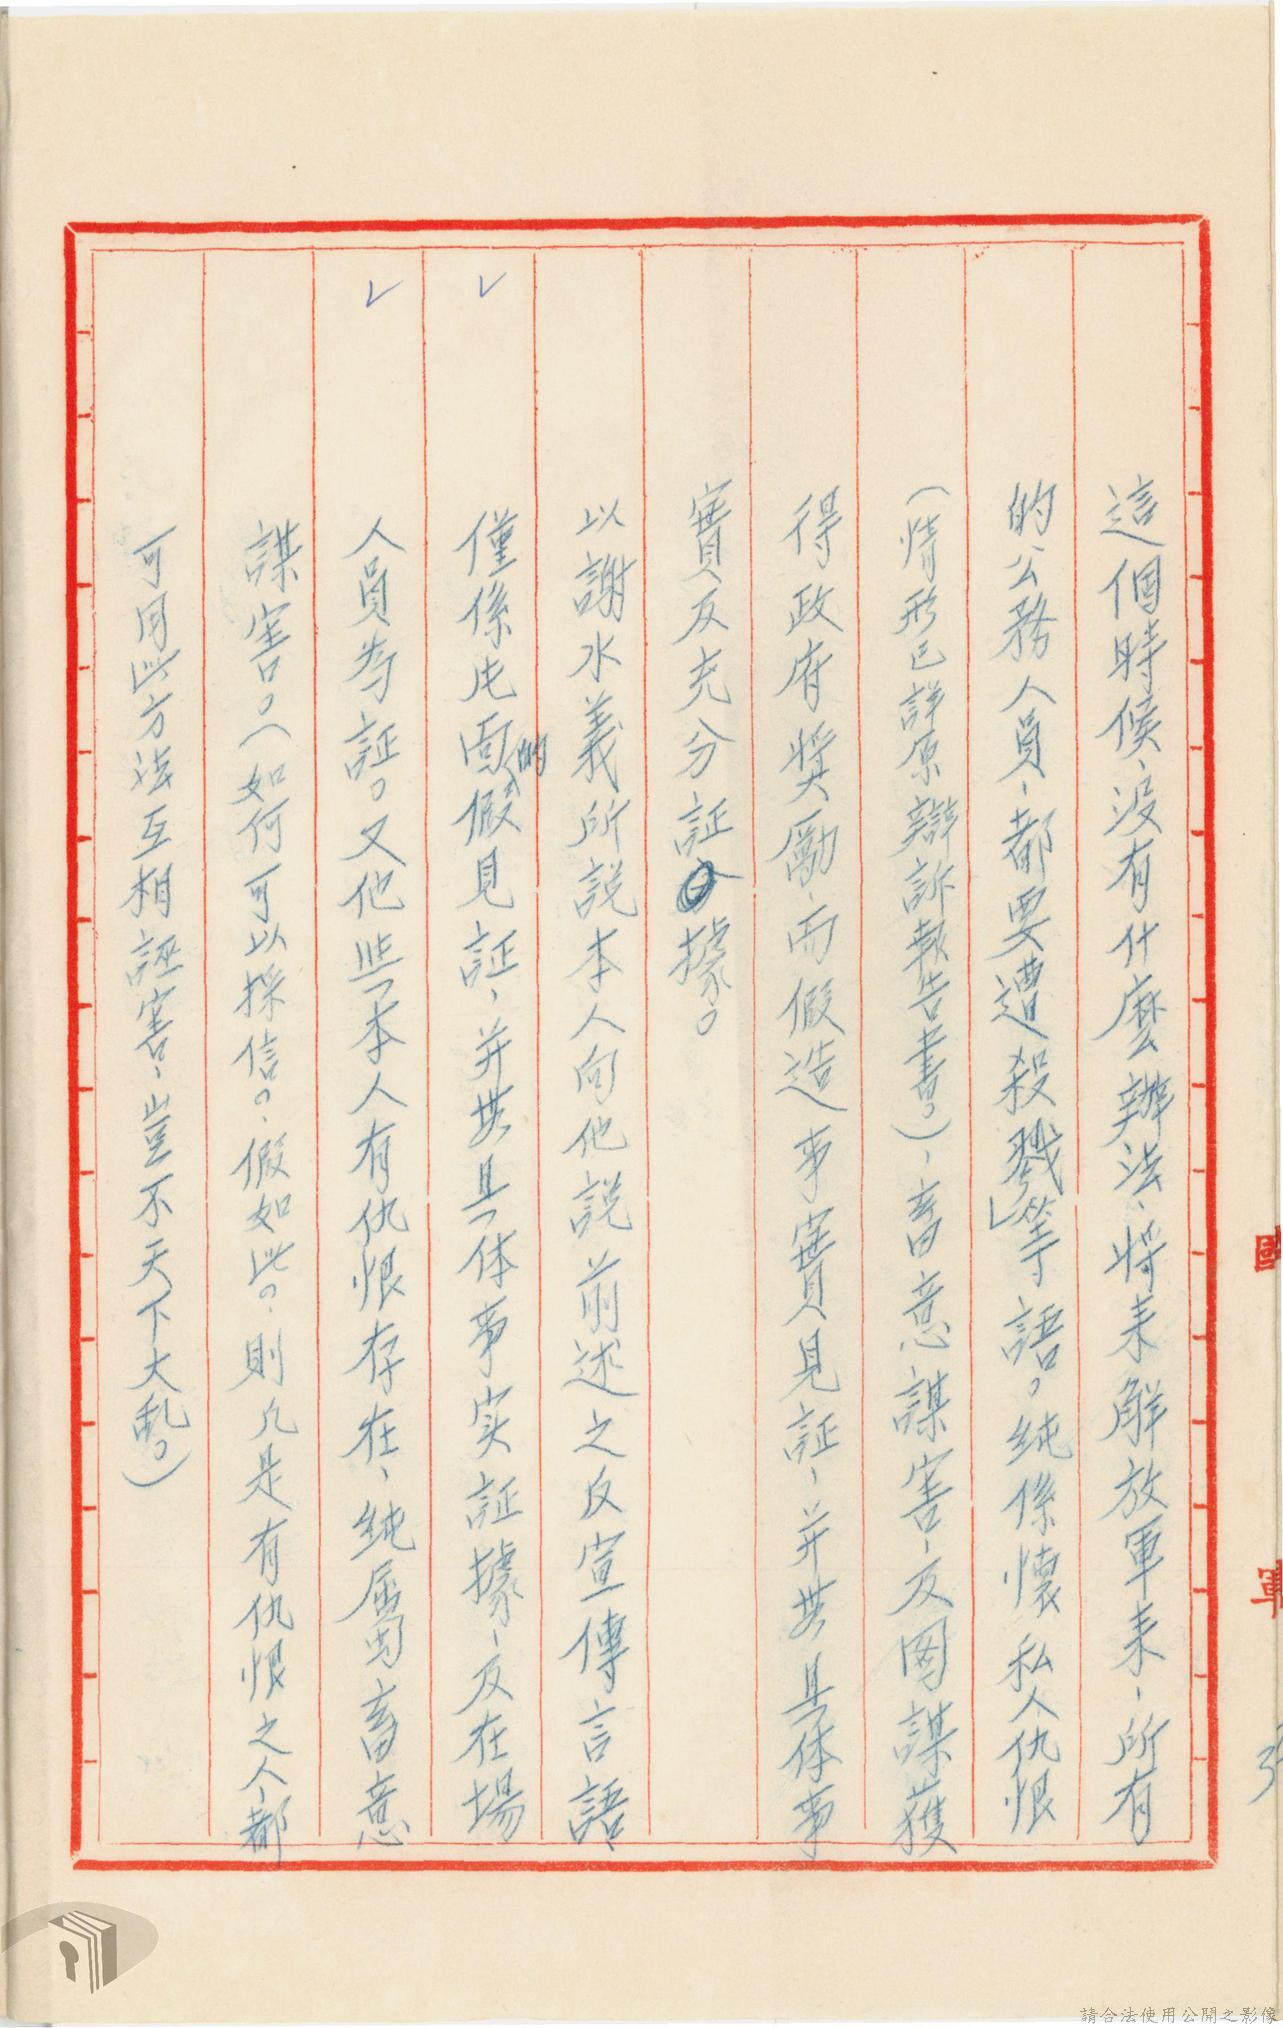 這個時候、没有什麼辦法、將来解放軍来、所有
的公務人員、都要遭殺戮」等語。純係懷私人仇恨
（情形已詳原辯訴報告書。）、畜意謀害、反図謀獲
得政府奬勵、而假造事實見証、并無具体事
實及充分証據。
以謝水義所説本人向他説前述之反宣傳言語
僅係片面的假見証、并無具体事实証據、及在場
人員為証。又他些本人有仇恨存在、純屬畜意
謀害。（如何可以採信。假如此。則凡是有仇恨之人、都
可用此方法互相誣害、豈不天下大乱。）
國
軍
請合法使用公開之影像